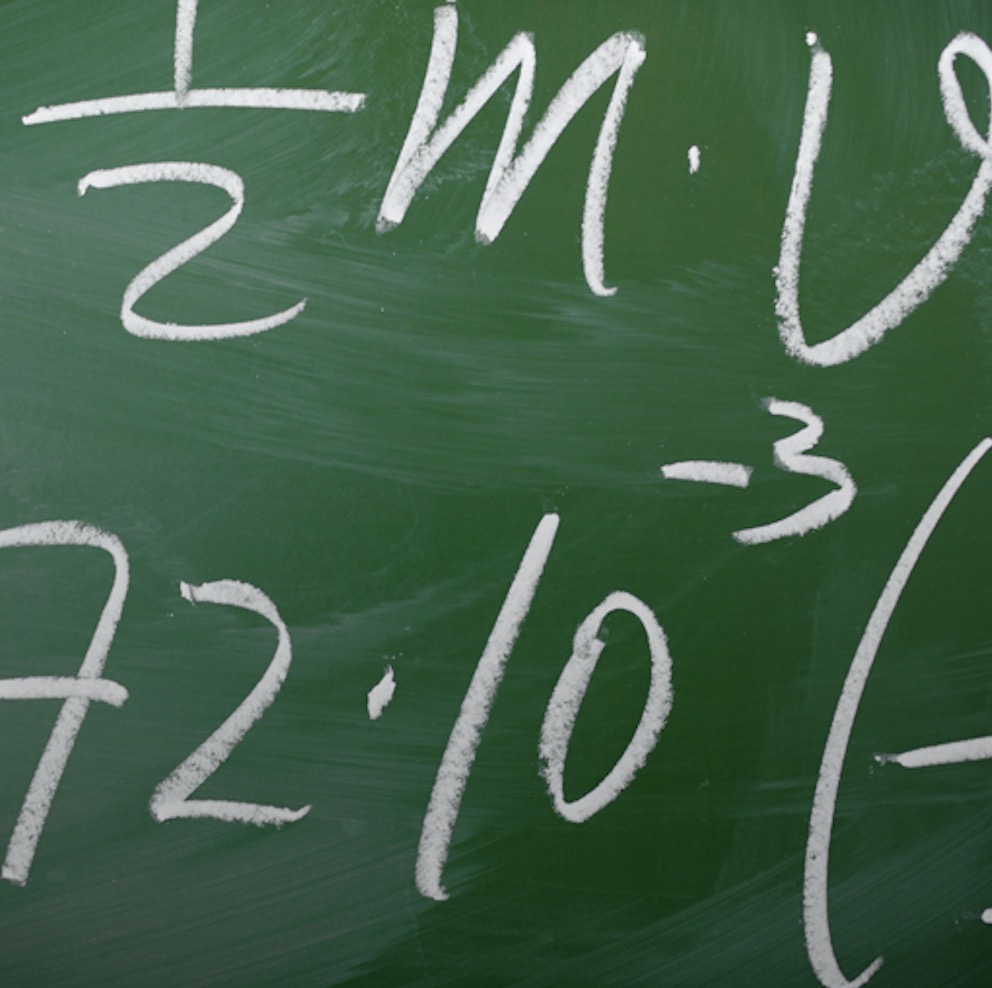 1/2 m · v
72 · 10^-3 (